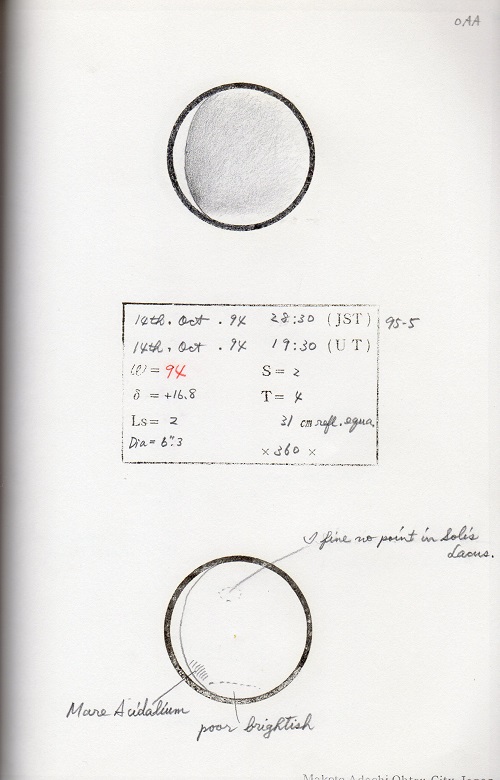 OAA
14th. Oct. 94 28:30 (JST) 95-5
14th, Oct. 94 19:30 (UT)
ω = 94 S = 2
δ = +16.8 T = 4
Ls = 2 31 cm refl. equa.
Dia = 6".3 × 360 ×
fine no point in Solis
Lacus.
Mare Acidalium
poor brightish
Makoto Adachi Ohtsu City, Japan